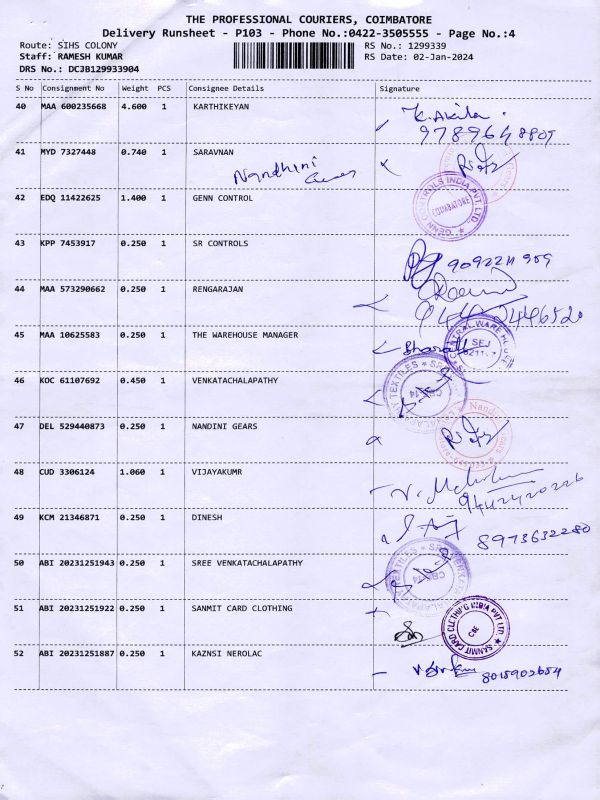 THE PROFESSIONAL COURIERS, COIMBATORE
Delivery Runsheet - P103 - Phone No.:0422-3505555 - Page No.:4
Route: SIHS COLONY RS No.: 1299339
Staff: RAMESH KUMAR RS Date: 02-Jan-2024
DRS No.: DCJB129933904
S No Consignment No Weight PCS Consignee Details Signature
40 MAA 600235668 4.600 1 KARTHIKEYAN K. Akila
41 MYD 7327448 0.740 1 SARAVNAN
Nandhini
42 EDQ 11422625 1.400 1 GENN CONTROL GENN CONTROLS INDIA PVT.LTD. COIMBATORE
43 KPP 7453917 0.250 1 SR CONTROLS
44 MAA 573290662 0.250 1 RENGARAJAN
45 MAA 10625583 0.250 1 THE WAREHOUSE MANAGER Bharath SEJ
46 KOC 61107692 0.450 1 VENKATACHALAPATHY
47 DEL 529440873 0.250 1 NANDINI GEARS
48 CUD 3306124 1.060 1 VIJAYAKUMR
9442420226
49 KCM 21346871 0.250 1 DINESH 8973632280
50 ABI 20231251943 0.250 1 SREE VENKATACHALAPATHY
51 ABI 20231251922 0.250 1 SANMIT CARD CLOTHING SANMIT CARD CLOTHING INDIA PVT LTD CBE
52 ABI 20231251887 0.250 1 KAZNSI NEROLAC 8015902654